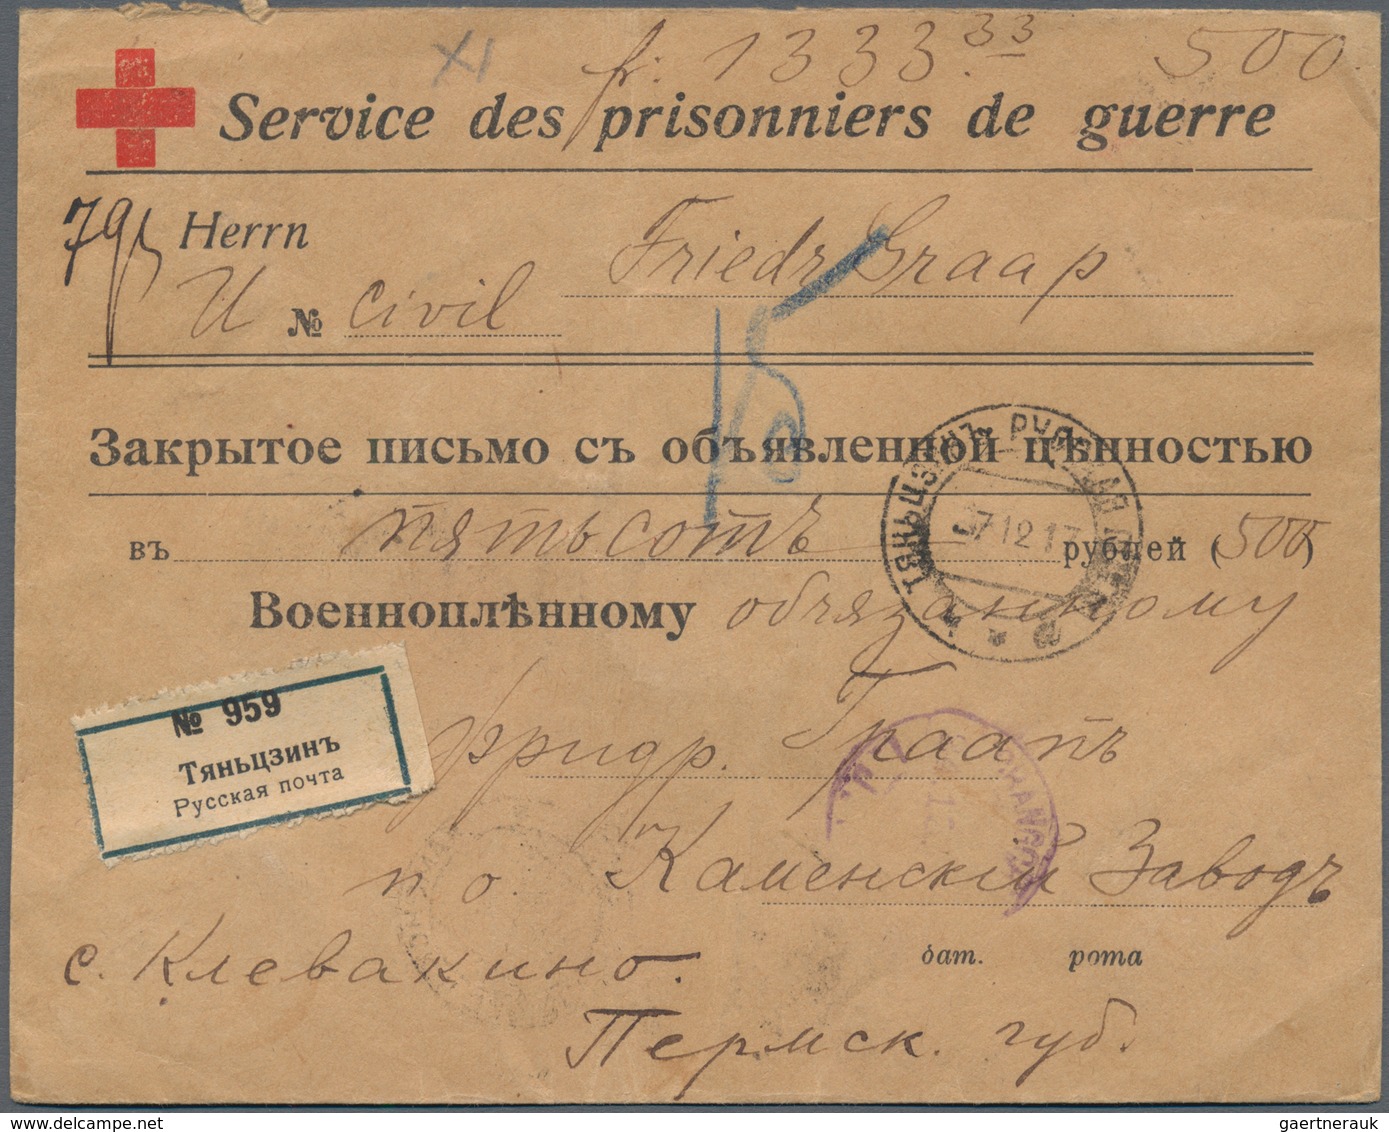 XI fr. 1333.33 500
Service des prisonniers de guerre
Herrn Friedr Graap
U № civil
Закрытое письмо съ объявленной цѣнностью
въ пятьсотъ рублей (500)
ТЯНЬЦЗИНЪ
7 12 17
Военноплѣнному обязанному
№ 959
Тяньцзинъ
Русская почта
Фридр. Граапъ
п. о. Каменскій Заводъ
с. Клевакино.
бат. рота
Пермск. губ.
gaertnerauk